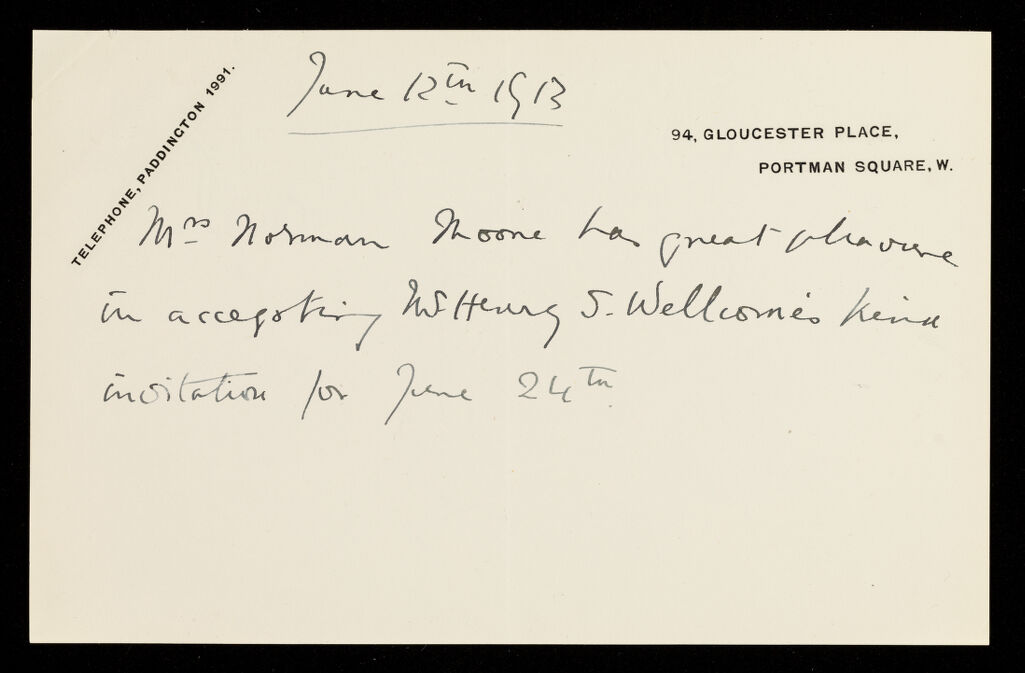 June 12th 1913
TELEPHONE, PADDINGTON 1991.
94, GLOUCESTER PLACE,
PORTMAN SQUARE, W.
Mrs Norman Moore has great pleasure
in accepting Mr Henry S. Wellcome's kind
invitation for June 24th.